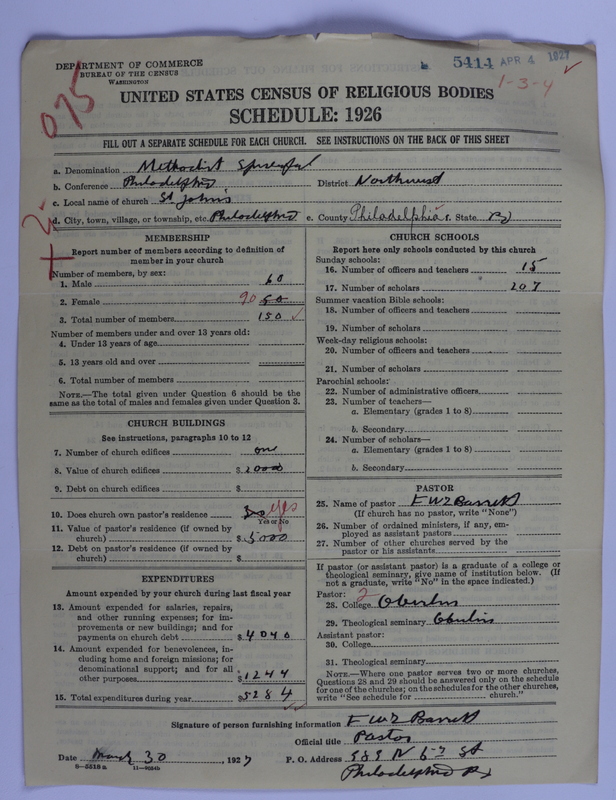 DEPARTMENT OF COMMERCE
BUREAU OF THE CENSUS
WASHINGTON
5414 APR 4 1927
1-3-4
075
UNITED STATES CENSUS OF RELIGIOUS BODIES
SCHEDULE: 1926
FILL OUT A SEPARATE SCHEDULE FOR EACH CHURCH. SEE INSTRUCTIONS ON THE BACK OF THIS SHEET
a. Denomination Methodist Episcopal
b. Conference Philadelphia District Northwest
c. Local name of church St Johns
d. City, town, village, or township, etc. Philadelphia e. County Philadelphia f. State Pa
MEMBERSHIP
Report number of members according to definition of
member in your church
Number of members, by sex:
1. Male 60
2. Female 90
3. Total number of members 150
Number of members under and over 13 years old:
4. Under 13 years of age
5. 13 years old and over
6. Total number of members
NOTE.—The total given under Question 6 should be the
same as the total of males and females given under Question 3.
CHURCH BUILDINGS
See instructions, paragraphs 10 to 12
7. Number of church edifices one
8. Value of church edifices $ 2000
9. Debt on church edifices $
10. Does church own pastor's residence yes
Yes or No
11. Value of pastor's residence (if owned by
church) $ 5000
12. Debt on pastor's residence (if owned by
church) $
EXPENDITURES
Amount expended by your church during last fiscal year
13. Amount expended for salaries, repairs,
and other running expenses; for im-
provements or new buildings; and for
payments on church debt $ 4040
14. Amount expended for benevolences, in-
cluding home and foreign missions; for
denominational support; and for all
other purposes $ 1244
15. Total expenditures during year $ 5284
CHURCH SCHOOLS
Report here only schools conducted by this church
Sunday schools:
16. Number of officers and teachers 15
17. Number of scholars 207
Summer vacation Bible schools:
18. Number of officers and teachers
19. Number of scholars
Week-day religious schools:
20. Number of officers and teachers
21. Number of scholars
Parochial schools:
22. Number of administrative officers
23. Number of teachers—
a. Elementary (grades 1 to 8)
b. Secondary
24. Number of scholars—
a. Elementary (grades 1 to 8)
b. Secondary
PASTOR
25. Name of pastor F W Z Barrett
(If church has no pastor, write "None")
26. Number of ordained ministers, if any, em-
ployed as assistant pastors
27. Number of other churches served by the
pastor or his assistants
If pastor (or assistant pastor) is a graduate of a college or
theological seminary, give name of institution below. (If
not a graduate, write "No" in the space indicated.)
Pastor: 2
28. College Oberlin
29. Theological seminary Oberlin
Assistant pastor:
30. College
31. Theological seminary
NOTE.—Where one pastor serves two or more churches,
Questions 28 and 29 should be answered only on the schedule
for one of the churches; on the schedules for the other churches,
write "See schedule for church."
Signature of person furnishing information F W Z Barrett
Official title Pastor
Date March 30, 1927 P. O. Address N St
8—5518 a Philadelphia Pa